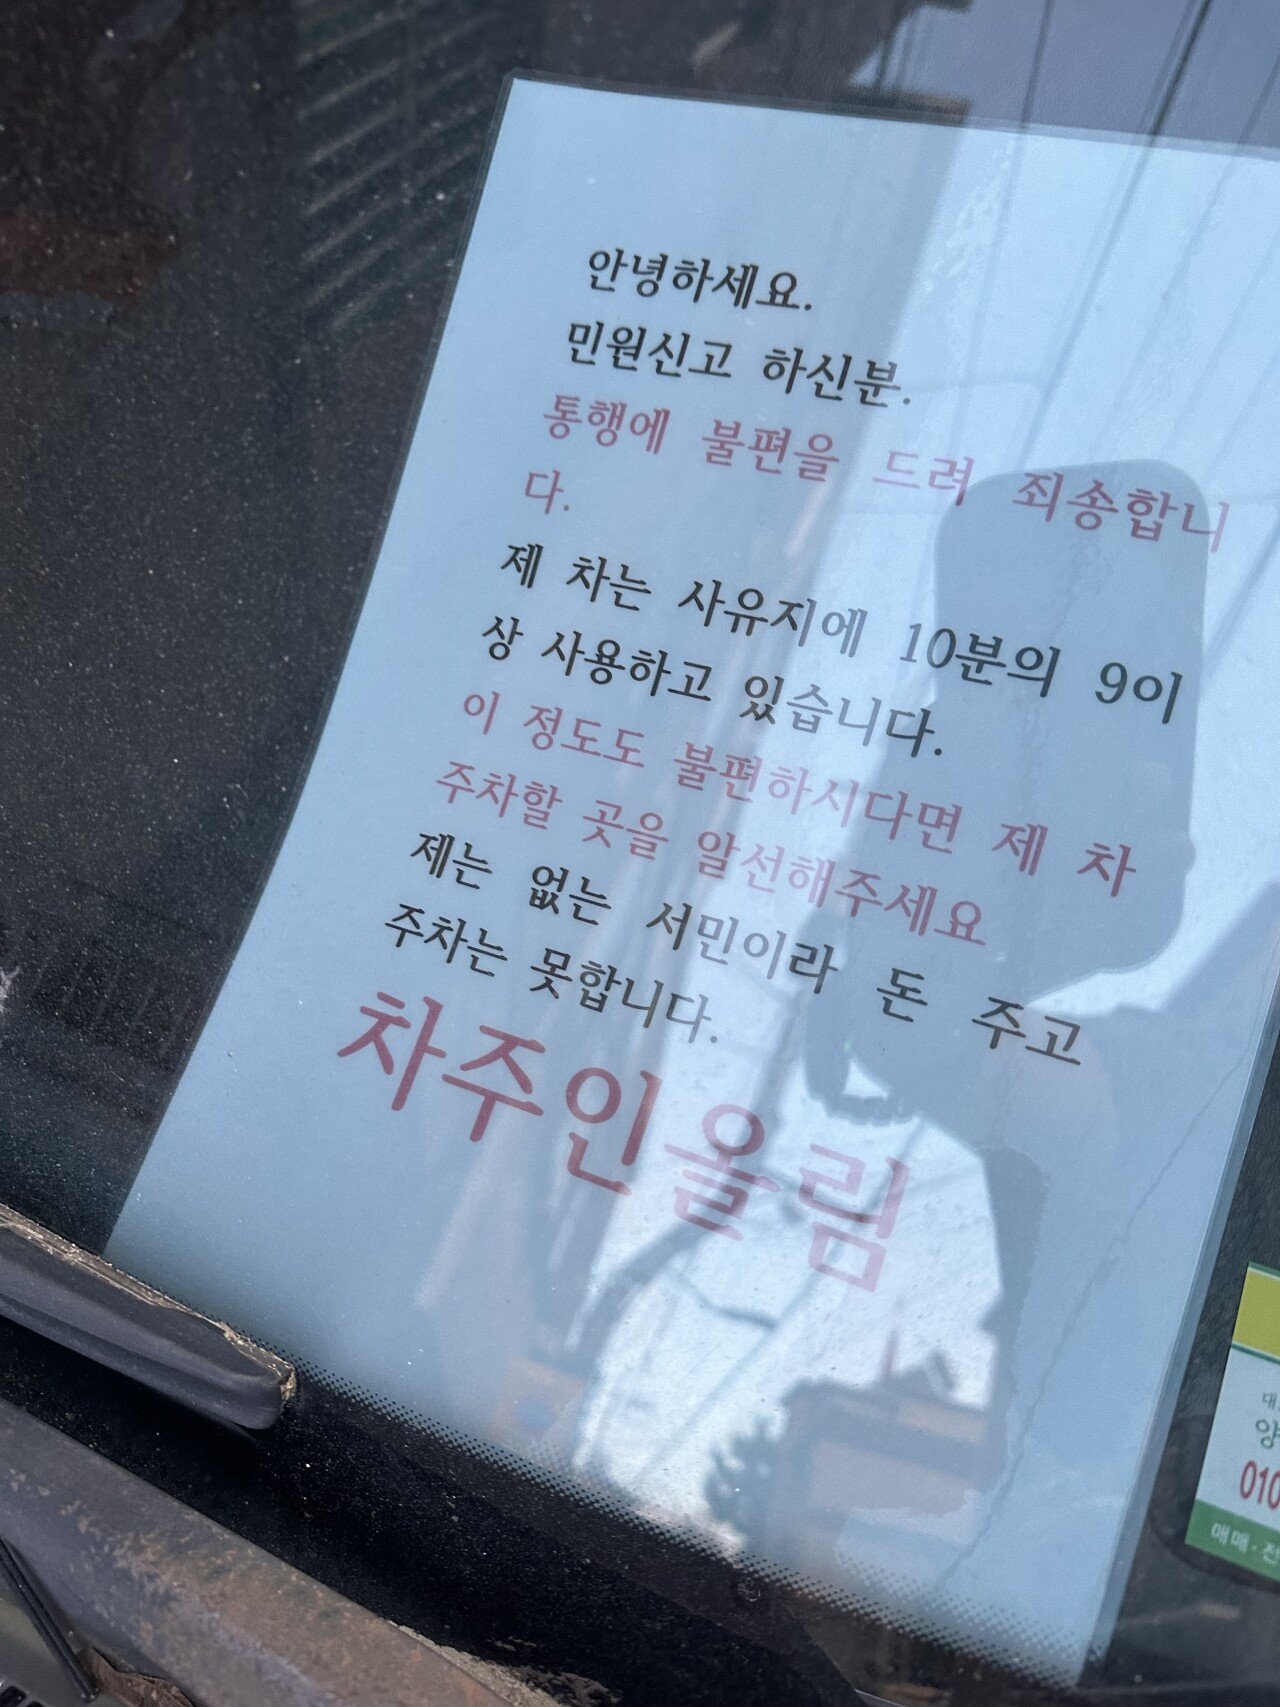 안녕하세요.
민원신고 하신분.
통행에 불편을 드려 죄송합니
다.
제 차는 사유지에 10분의 9이
상 사용하고 있습니다.
이 정도도 불편하시다면 제 차
주차할 곳을 알선해주세요
제는 없는 서민이라 돈 주고
주차는 못합니다.
차주인올림
대
양
010
매매·전